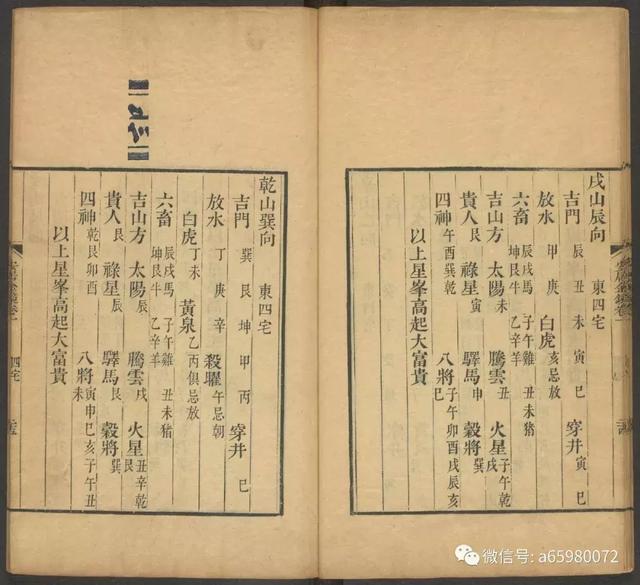 戌山辰向 東四宅
吉門 辰丑未寅巳 穿井 寅巳
放水 甲庚 白虎 亥忌放
六畜 辰戌馬 子午雞 丑未猪 坤艮牛 乙辛羊
吉山方 太陽未 騰雲丑 火星 子午乾戌
貴人艮 祿星寅 驛馬申 穀將巽
四神 午酉巽乾 八將 子午卯酉戌辰亥巳
以上星峯高起大富貴
乾山巽向 東四宅
吉門 巽艮坤甲丙 穿井 巳
放水 丁庚辛 殺曜 午忌朝
白虎 丁未 黃泉 乙丙俱忌放
六畜 辰戌馬 子午雞 丑未猪 坤艮牛 乙辛羊
吉山方 太陽辰 騰雲戌 火星 丑辛乾艮
貴人艮 祿星辰 驛馬艮 穀將巽
四神 乾艮卯酉 八將 寅申巳亥子午丑未
以上星峯高起大富貴
四宅
微信号: a65980072